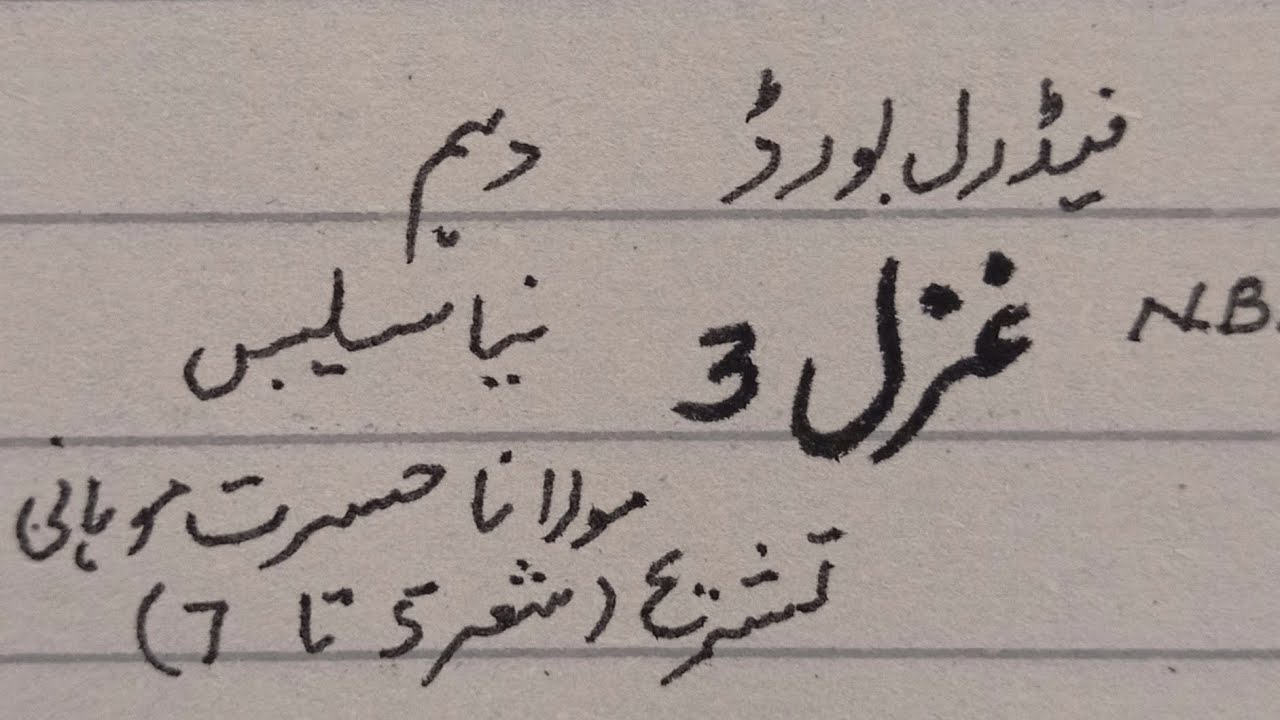 فیڈرل بورڈ دہم
N.B. غزل 3 نیا سلیبس
مولانا حسرت موہانی
تشریح (شعر 5 تا 7)